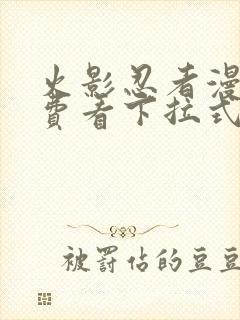 火影忍者漫
费看下拉式
被罚站的豆豆